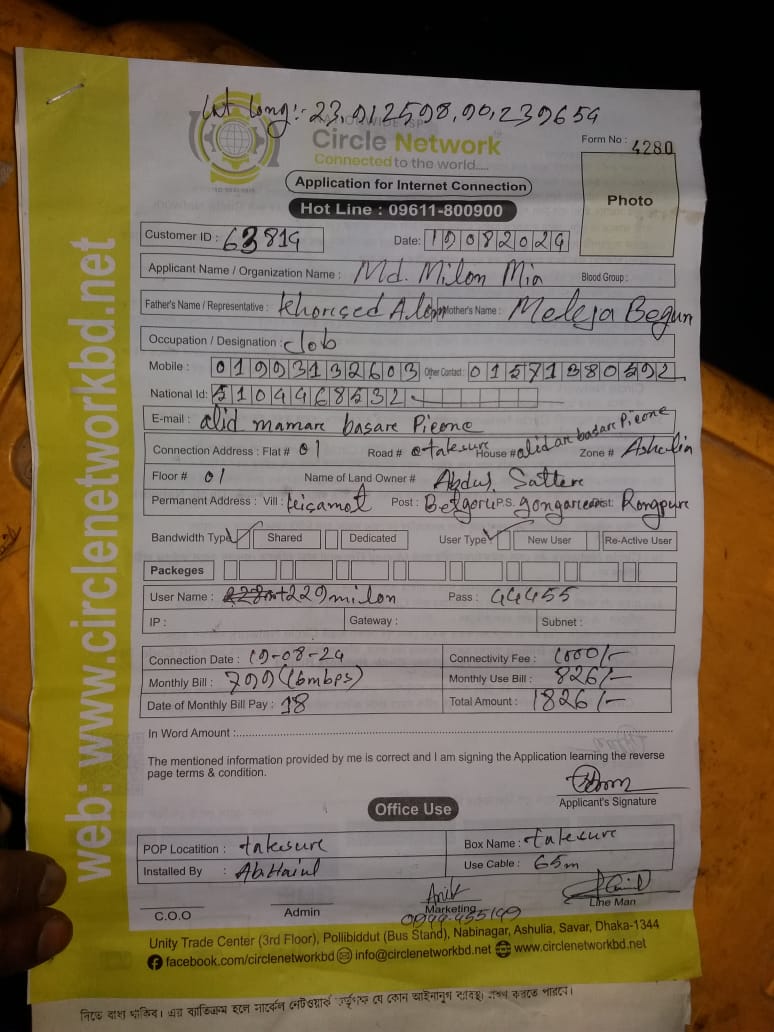 Lat Long:- 23.912598,90.239659
Circle Network
Connected to the world.....
Form No : 4280
Photo
Application for Internet Connection
Hot Line : 09611-800900
Customer ID : 63819
Date: 19082024
Applicant Name / Organization Name : Md. Milon Mia Blood Group :
Father's Name / Representative : Khorised Alom Mother's Name : Meleja Begun
Occupation / Designation : Job
Mobile : 01993132603 Other Contact : 01571380592
National Id: 5104468532
E-mail : alid mamare basare Pieone
Connection Address : Flat # 01 Road # House # alid ar basare Pieone Zone # Ashulia
Floor # 01 Name of Land Owner # Abdul Satter
Permanent Address : Vill : Post : P.S. Dist: Rongpure
Bandwidth Type Shared Dedicated User Type New User Re-Active User
Packeges
User Name : t229milon Pass : 44455
IP : Gateway : Subnet :
Connection Date : 19-08-24 Connectivity Fee : 1000/-
Monthly Bill : 799 (16mbps) Monthly Use Bill : 826/-
Date of Monthly Bill Pay : 18 Total Amount : 1826/-
In Word Amount :
The mentioned information provided by me is correct and I am signing the Application learning the reverse
page terms & condition.
Applicant's Signature
Office Use
POP Locatition : takesure Box Name : takesure
Installed By : Use Cable : 65m
C.O.O Admin Marketing Line Man
Unity Trade Center (3rd Floor), Pollibiddut (Bus Stand), Nabinagar, Ashulia, Savar, Dhaka-1344
facebook.com/circlenetworkbd info@circlenetworkbd.net www.circlenetworkbd.net
web: www.circlenetworkbd.net